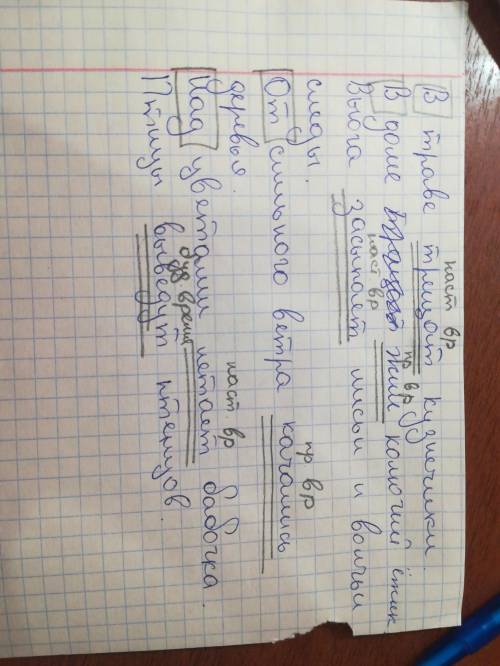 наст вр
В траве трещат кузнечики.
пр вр
В доме жил колючий ёжик.
наст вр
Вьюга засыпает лисьи и волчьи
следы.
пр вр
От сильного ветра качались
деревья.
наст. вр
Над цветами летает бабочка.
буд время
Птицы выведут птенцов.